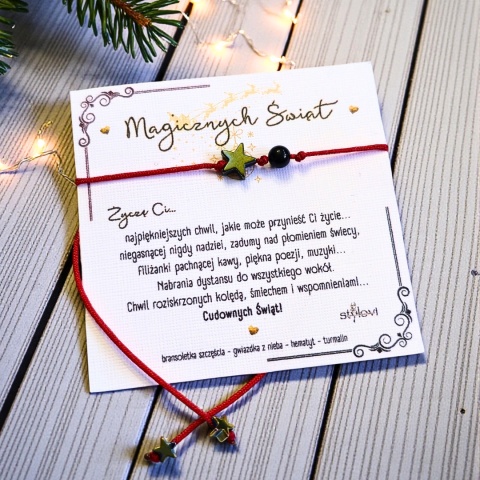 Magicznych Świąt
Życzę Ci...
najpiękniejszych chwil, jakie może przynieść Ci życie...
niegasnącej nigdy nadziei, zadumy nad płomieniem świecy,
Filiżanki pachnącej kawy, piękna poezji, muzyki...
Nabrania dystansu do wszystkiego wokół.
Chwil roziskrzonych kolędą, śmiechem i wspomnieniami...
Cudownych Świąt!
stylovi
bransoletka szczęścia - gwiazdka z nieba - hematyt - turmalin